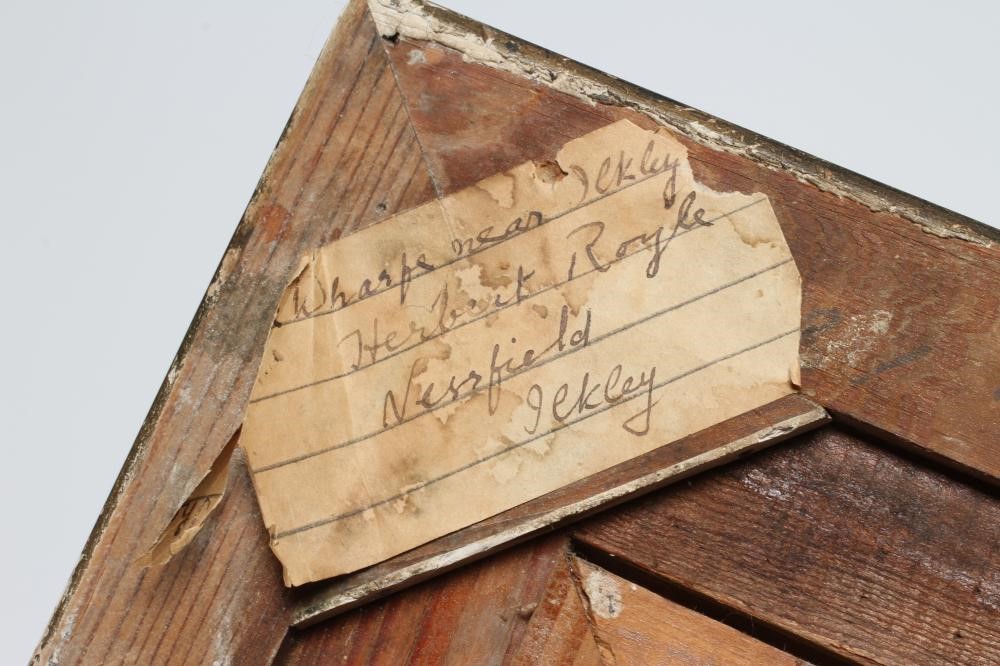 Wharfe near Ilkley
Herbert Royle
Nessfield
Ilkley